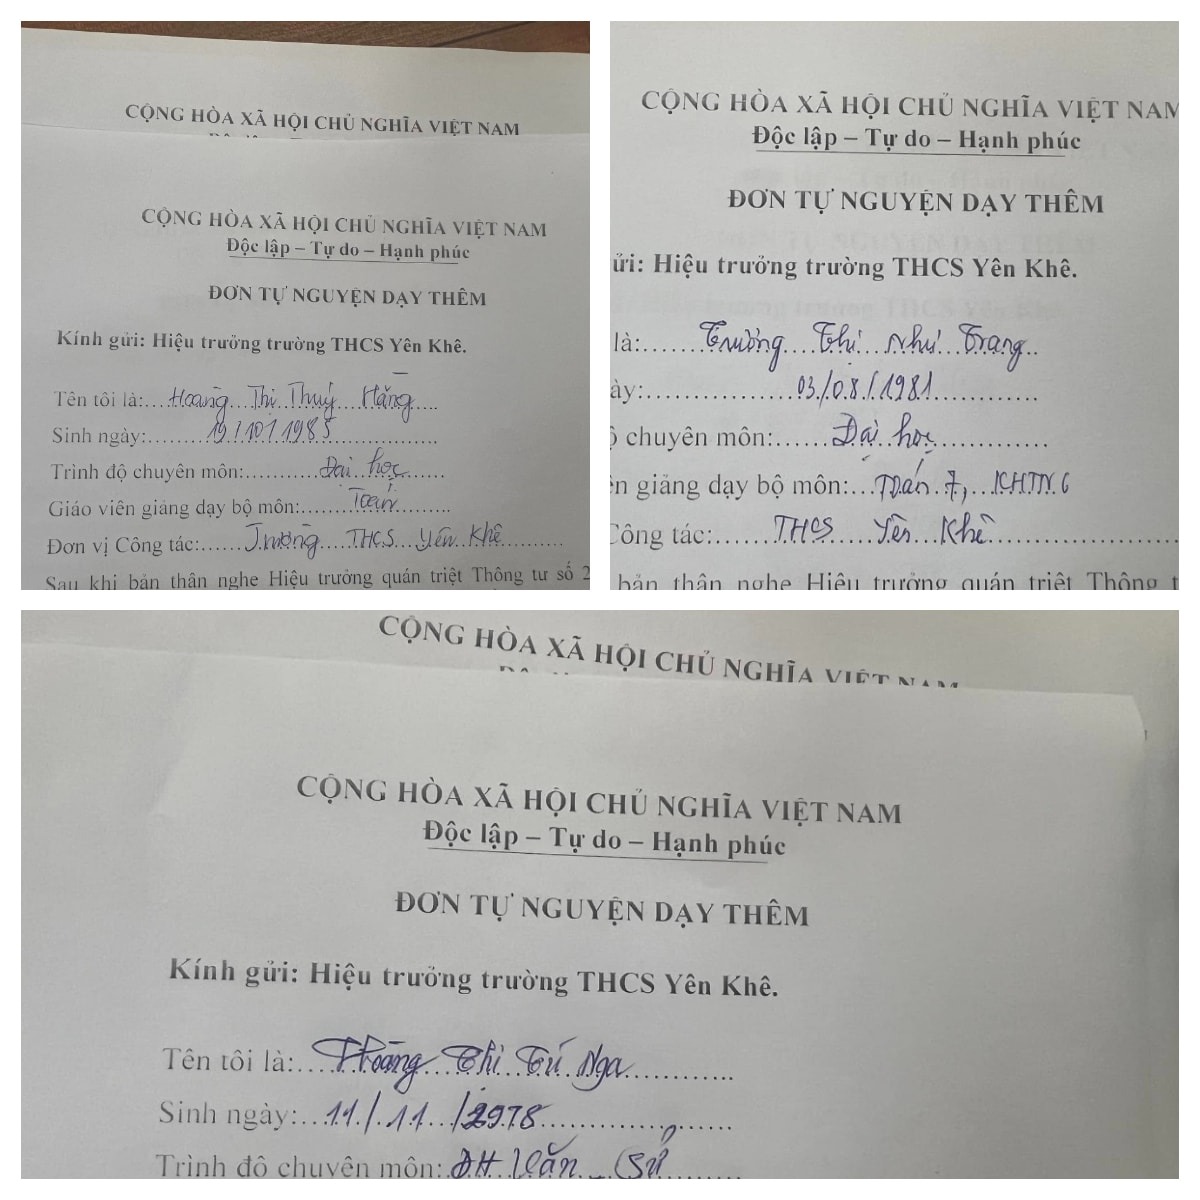 CỘNG HÒA XÃ HỘI CHỦ NGHĨA VIỆT NAM
CỘNG HÒA XÃ HỘI CHỦ NGHĨA VIỆT NAM
Độc lập – Tự do – Hạnh phúc
ĐƠN TỰ NGUYỆN DẠY THÊM
Kính gửi: Hiệu trưởng trường THCS Yên Khê.
Tên tôi là:....Hoàng Thị Thuý Hằng....
Sinh ngày:........19/10/1985..............
Trình độ chuyên môn:..........Đại học.......
Giáo viên giảng dạy bộ môn:........Toán........
Đơn vị Công tác:......Trường THCS Yên Khê..........
Sau khi bản thân nghe Hiệu trưởng quán triệt Thông tư số 2
CỘNG HÒA XÃ HỘI CHỦ NGHĨA VIỆT NAM
Độc lập – Tự do – Hạnh phúc
ĐƠN TỰ NGUYỆN DẠY THÊM
ửi: Hiệu trưởng trường THCS Yên Khê.
là:........Trương Thị Như Trang..
ày:..................03/08/1981.............
ộ chuyên môn:......Đại học..............
ên giảng dạy bộ môn:...Toán 7, KHTN 6
Công tác:.......THCS Yên Khê....................
bản thân nghe Hiệu trưởng quán triệt Thông t
CỘNG HÒA XÃ HỘI CHỦ NGHĨA VIỆT NAM
CỘNG HÒA XÃ HỘI CHỦ NGHĨA VIỆT NAM
Độc lập – Tự do – Hạnh phúc
ĐƠN TỰ NGUYỆN DẠY THÊM
Kính gửi: Hiệu trưởng trường THCS Yên Khê.
Tên tôi là:....Hoàng Thị Tú Nga............
Sinh ngày:...11/11/1978......................
Trình độ chuyên môn: ĐH Văn Sử